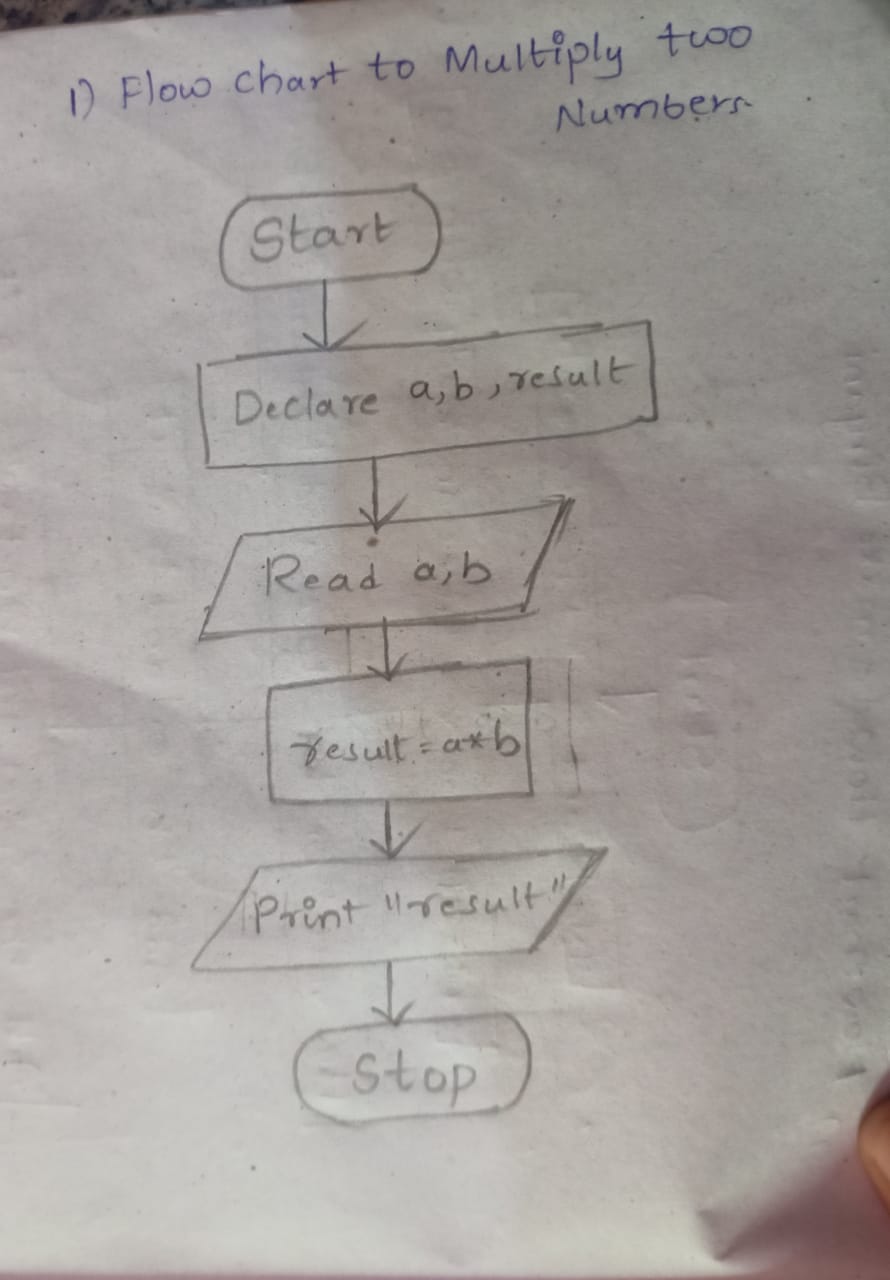 1) Flow chart to Multiply two
Numbers.
Start
Declare a,b,result
Read a,b
result=a*b
Print "result"
Stop